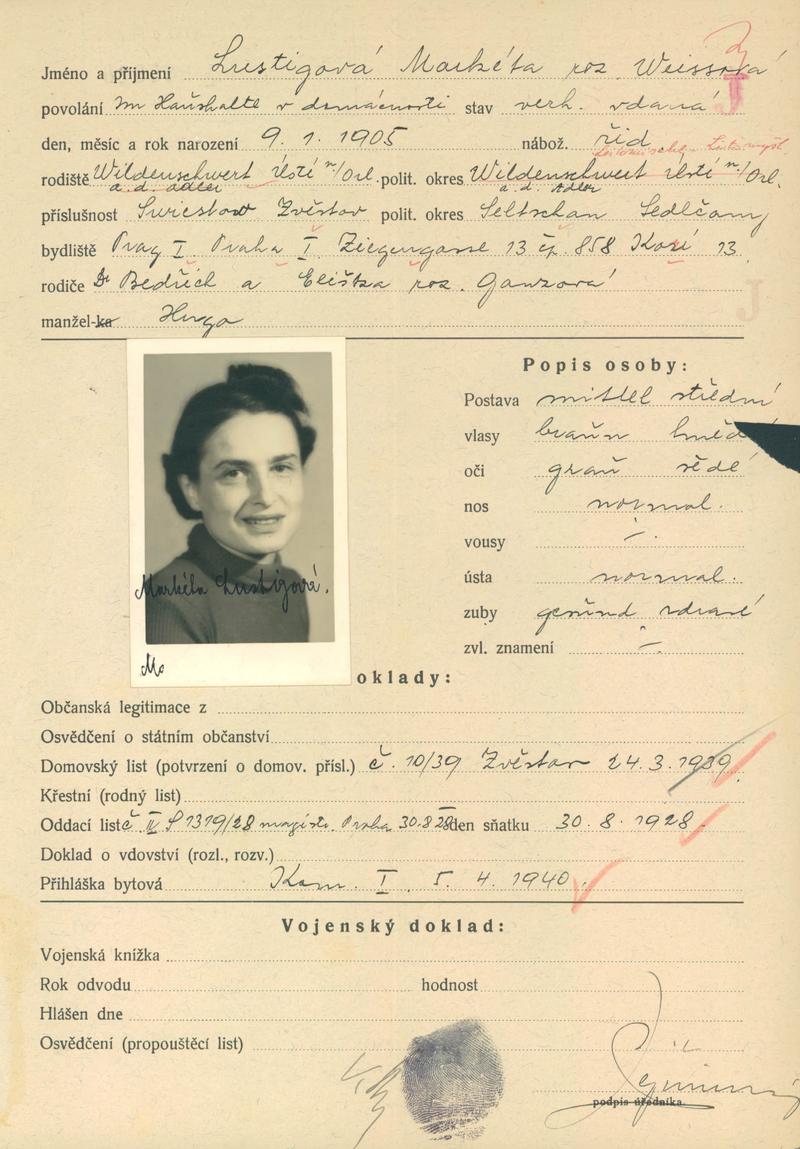 Jméno a příjmení Lustigová Markéta roz. Weissová
povolání im Haushalte v domácnosti stav verh. vdaná
den, měsíc a rok narození 9. 1. 1905 nábož. žid.
rodiště Wildenschwert Ústí n./Orl. polit. okres Wildenschwert Ústí n./Orl.
a. d. Adler a. d. Adler
příslušnost Zvěstov polit. okres Seltschan Sedlčany
bydliště Prag I Praha I Ziegengasse 13 čp. 858 Kozí 13
rodiče Dr Bedřich a Eliška roz. Ganzová
manžel-ka Hugo
J
Popis osoby:
Postava mittel střední
vlasy braun hněd
oči grau šedé
nos normal.
vousy –.
ústa normal.
zuby gesund zdravé
zvl. znamení –.
Markéta Lustigová.
Mo
oklady:
Občanská legitimace z
Osvědčení o státním občanství
Domovský list (potvrzení o domov. přísl.) č. 10/39 Zvěstov 24. 3. 1939
Křestní (rodný list)
Oddací list č IV S 1319/28 magistr. Praha 30.8.28 den sňatku 30. 8. 1928
Doklad o vdovství (rozl., rozv.)
Přihláška bytová Kom. I 5. 4. 1940
Vojenský doklad:
Vojenská knížka
Rok odvodu hodnost
Hlášen dne
Osvědčení (propouštěcí list)
podpis úředníka.